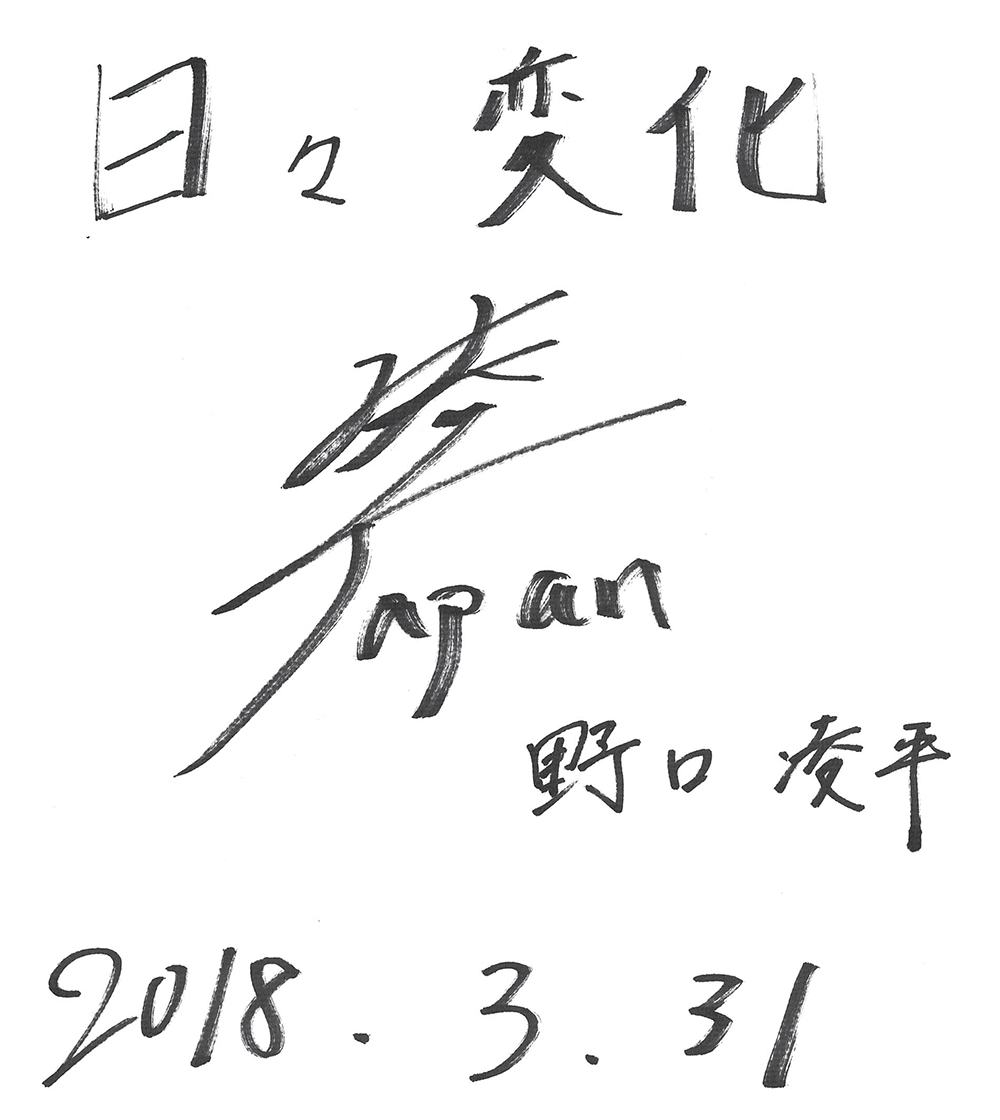 日々変化
凌
Japan
野口 凌平
2018.3.31